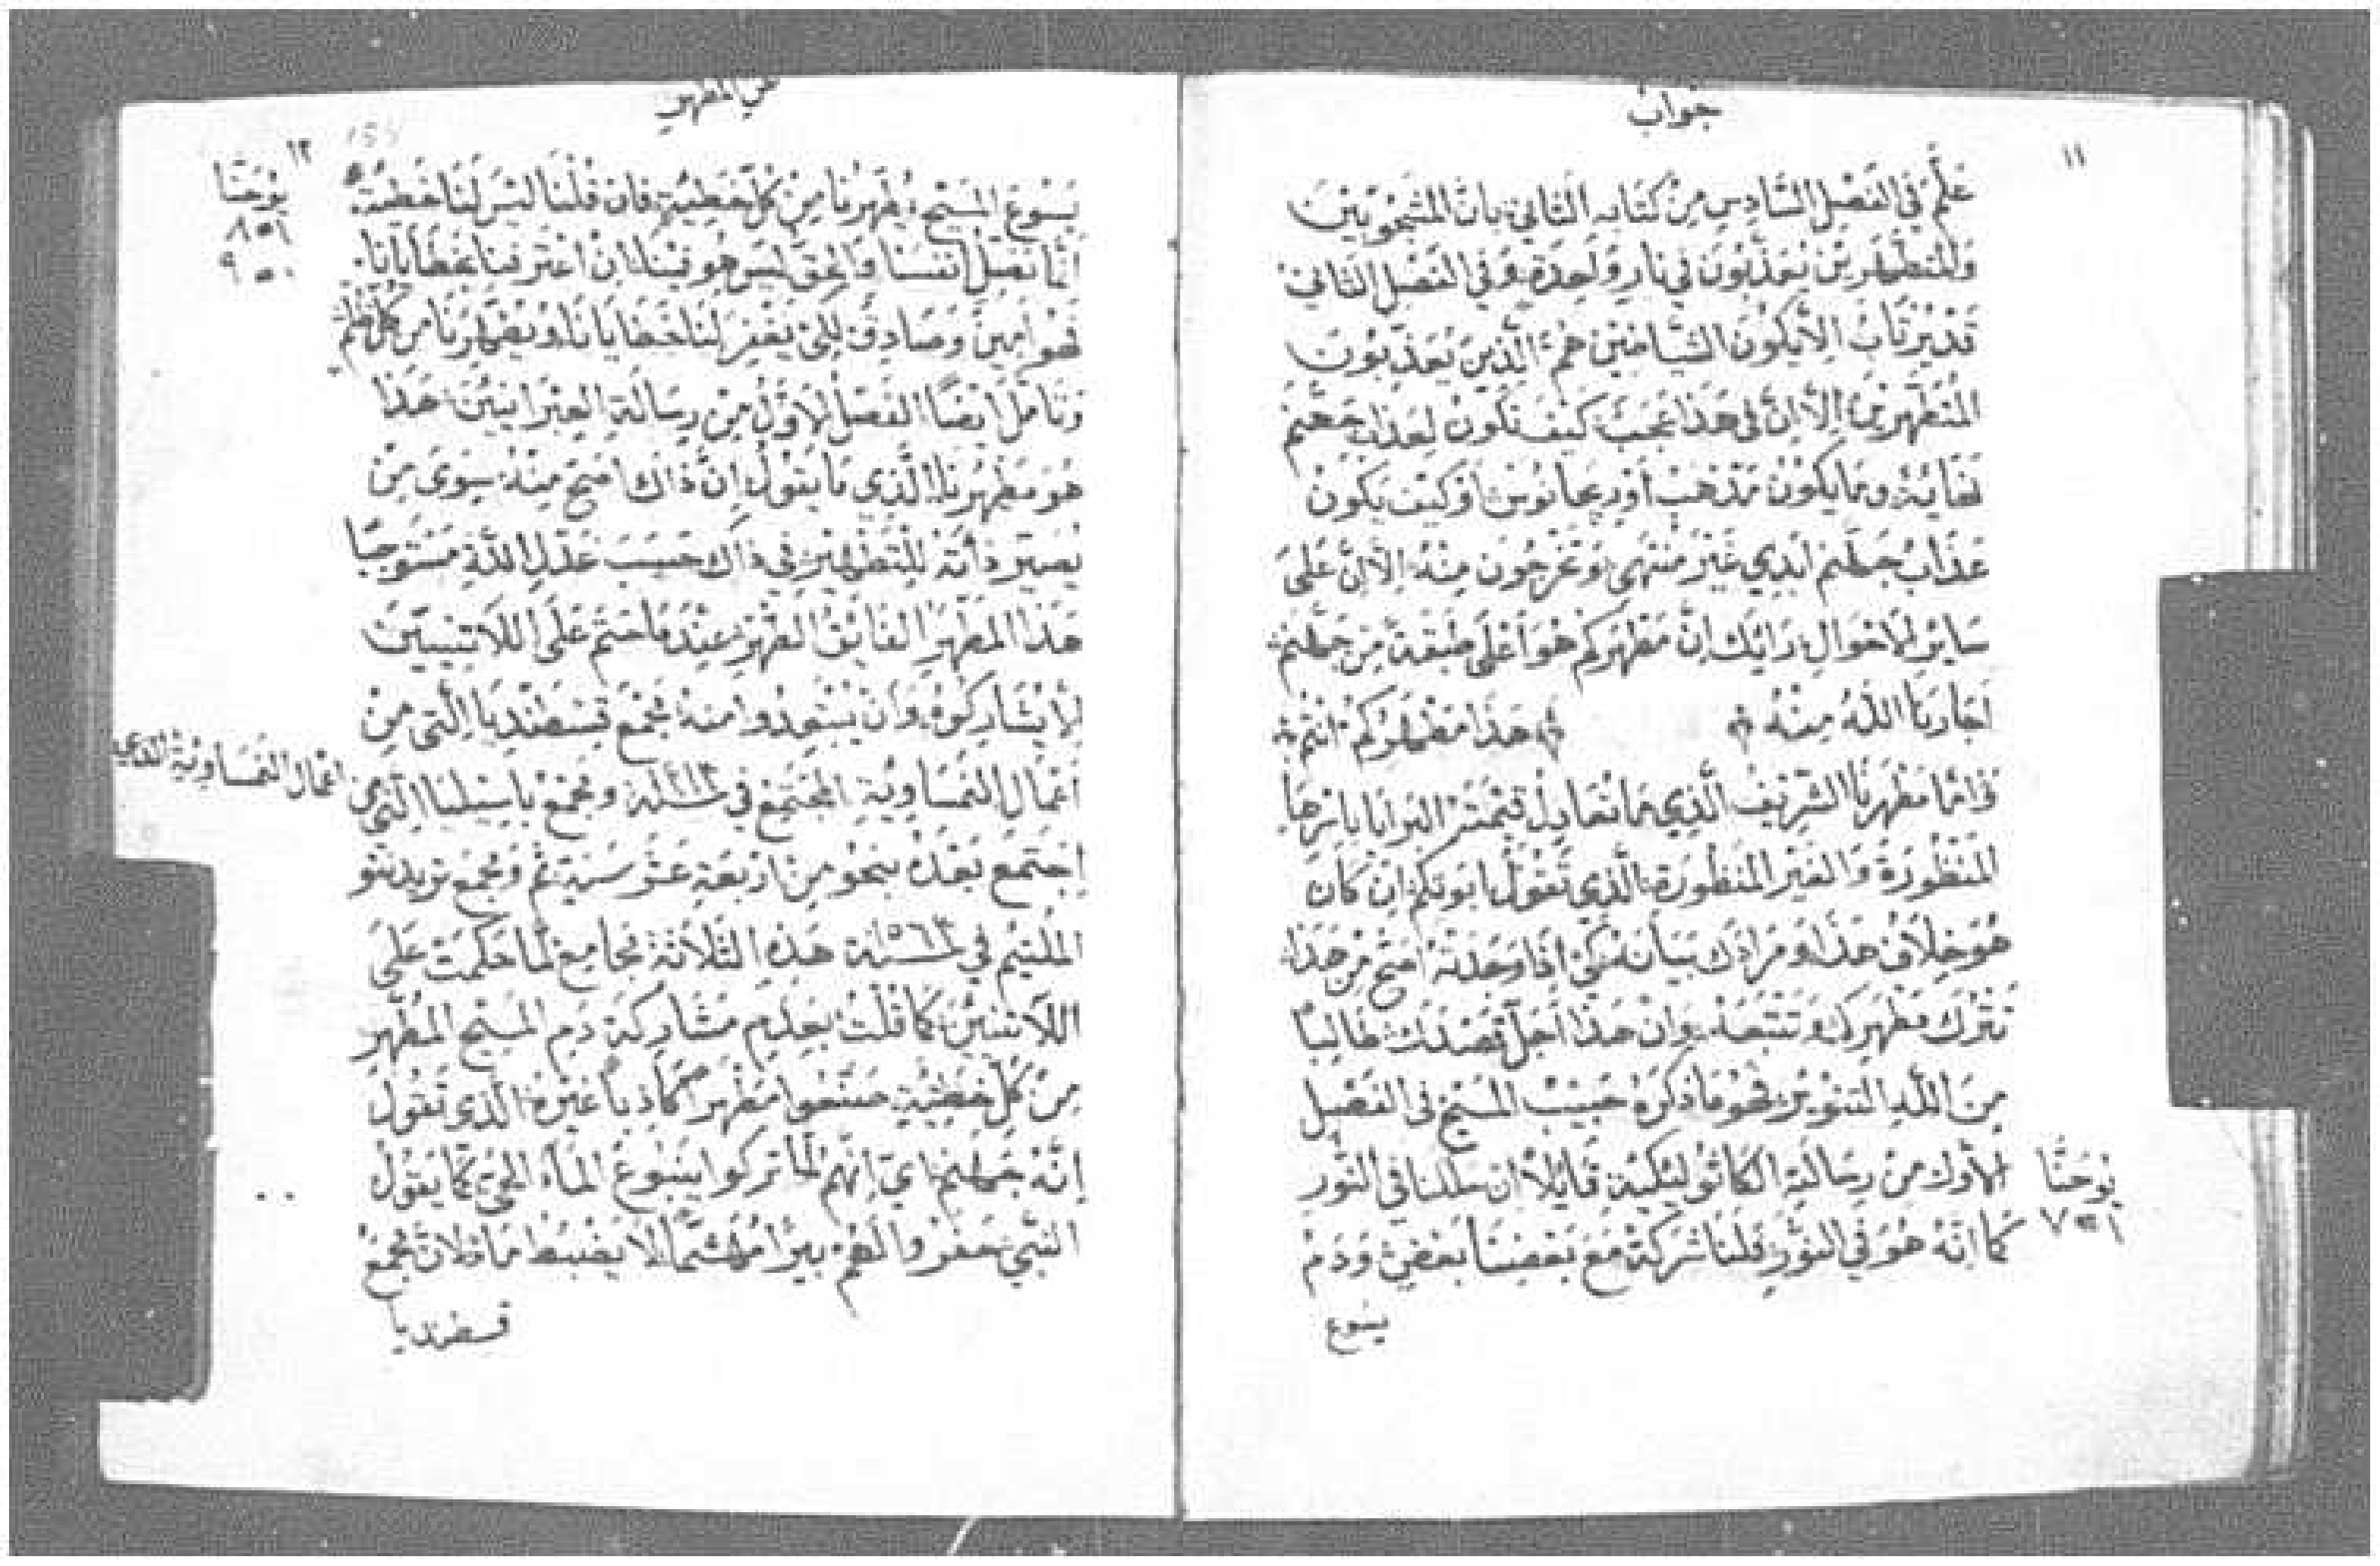 جواب
١١
علم في الفصل السادس من كتابه الثاني بان المسجونين
والمتطهرين يعذبون في نار واحدة وفي الفصل الثاني
قد يرتاب الا يكون الشياطين هم الذين يعذبون
المتطهرين الا ان لي هذا عجب كيف تكون لعذاب جهنم
نهاية وما يكون مذهب اوريجانوس او كيف يكون
عذاب جهنم ابدي غير منتهى وتخرجون منه الا ان على
ساير الاحوال رايك ان مطهركم هو اعلى طبقة من جهنم
اجارنا الله منه هذا مطهركم انتم
فاما مطهرنا الشريف الذي ما تعادل قيمته البرايا باسرها
المنظورة والغير المنظورة الذي تقول يا بوتكم ان كان
هو خلاف هذا ومرادك بيانه لكي اذا وجدته اصح من هذا
تترك مطهرك وتتبعه وان هذا اجل قصدك طالبا
من الله التنوير فهو ما ذكره حبيب المسيح في الفصل
الاول من رسالته الكاثوليكية قايلا ان سلكنا في النور
يوحنا
١ = ٧
كما انه هو في النور فلنا شركة مع بعضنا بعض ودم
يسوع
عن المطهر
١٢
يسوع المسيح يطهرنا من كل خطية فان قلنا ليس لنا خطية
يوحنا
١ = ٨
٩ = ٠
انما نضل انفسنا والحق ليس هو فينا ان اعترفنا بخطايانا
فهو امين وصادق لكي يغفر لنا خطايانا ويطهرنا من كل ظلم
وتامل ايضا الفصل الاول من رسالة العبرانيين هذا
هو مطهرنا الذي ما يقول ان ذاك اصح منه سوى من
يصير ذاته للتطهير في ذاك حسب عدل الله مستوجبا
هذا المطهر الفايق الطهر عندما حتم على اللاتينيين
لا يشاركوه وان يبتعدوا منه مجمع قسطنديا التي من
اعمال النمساوية المجتمع في سنة ومجمع باسيليا التي من
اعمال النمساوية
اجتمع بعده بنحو من اربعة عشر سنة ثم ومجمع تريدنتو
الملتيم في سنة هذه الثلاثة مجامع لما حكمت على
اللاتينيين كما قلت بعدم مشاركة دم المسيح المطهر
من كل خطية صنعوا مطهرا كاذبا غيره الذي تقول
انه جهنم اي انهم لما تركوا ينبوع الماء الحي كما يقول
النبي حفروا لهم بيرا مهشما لا يضبط ما ذلان مجمع
قسطنديا